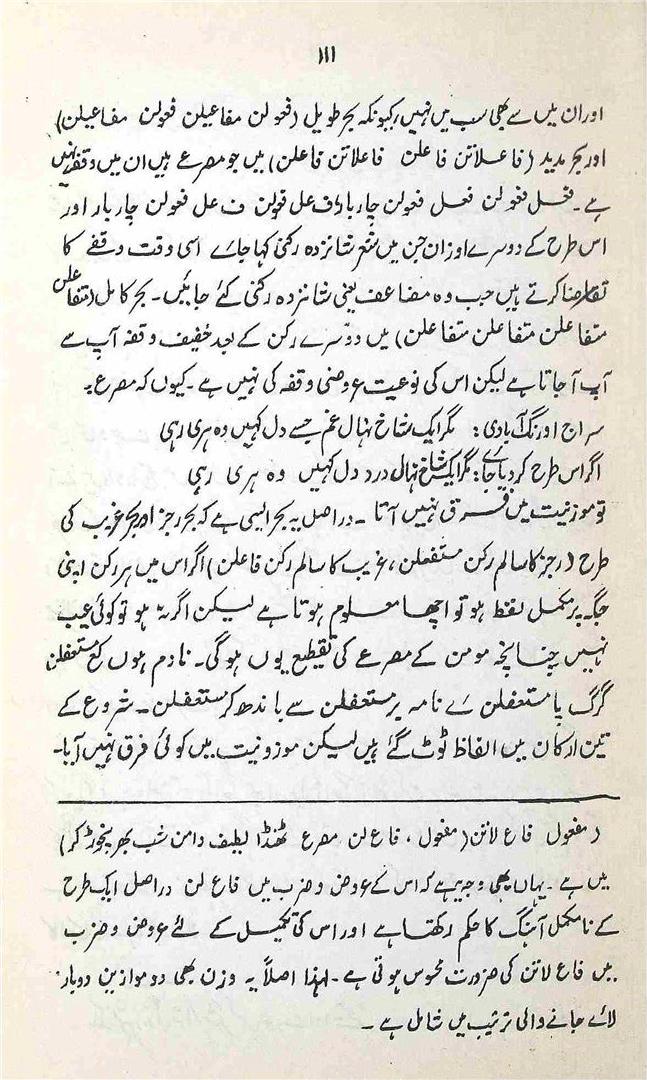 ۱۱۱
اور ان میں سے بھی سب میں نہیں، کیونکہ بحر طویل (فعولن مفاعیلن فعولن مفاعیلن)
اور بحر مدید (فاعلاتن فاعلن فاعلاتن فاعلن) میں جو مصرع ہیں ان میں وقفہ نہیں
ہے۔ فعل فعولن فعل فعولن چار بار اف عل فولن ف عل فعولن چار بار اور
اس طرح کے دوسرے اوزان جن میں شعر شانزدہ رکنی کہا جائے اسی وقت وقفے کا
تقاضا کرتے ہیں جب وہ مضاعف یعنی شانزدہ رکنی کئے جائیں۔ بحر کامل (متفاعلن
متفاعلن متفاعلن متفاعلن) میں دوسرے رکن کے بعد خفیف وقفہ آپ سے
آپ آ جاتا ہے لیکن اس کی نوعیت عروضی وقفہ کی نہیں ہے۔ کیوں کہ مصرع ہہ
سراج اورنگ آبادی: مگر ایک شاخ نہال غم جسے دل کہیں وہ ہری رہی
اگر اس طرح کر دیا جائے: مگر ایک شاخ نہال درد دل کہیں وہ ہری رہی
تو موزنیت میں فرق نہیں آتا۔ دراصل یہ بحر ایسی ہے کہ بحر رجز اور بحر غریب کی
طرح (رجز کا سالم رکن مستفعلن، غریب کا سالم رکن فاعلن) اگر اس میں ہر رکن اپنی
جگہ پر مکمل لفظ ہو تو اچھا معلوم ہوتا ہے لیکن اگر نہ ہو تو کوئی عیب
نہیں چنانچہ مومن کے مصرعے کی تقطیع یوں ہوگی۔ نادم ہوں کع مستعفلن
گرگ پا مستعفلن ئے نامہ بر مستعفلن سے باندھ کر مستعفلن۔ شروع کے
تین ارکان میں الفاظ ٹوٹ گئے ہیں لیکن موزونیت میں کوئی فرق نہیں آیا۔
(مفعول فاع لاتن (مفعول، فاع لن مصرع ٹھنڈا لطیف دامن شب بھر نچوڑ کر)
میں ہے۔ یہاں بھی وجہ یہ ہے کہ اس کے عروض و ضرب میں فاع لن دراصل ایک طرح
کے نامکمل آہنگ کا حکم رکھتا ہے اور اس کی تکمیل کے لئے عروض و ضرب
میں فاع لاتن کی ضرورت محسوس ہوتی ہے۔ لہذا اصلاً یہ وزن بھی دو موازین دو بار
لائے جانے والی ترتیب میں شامل ہے۔